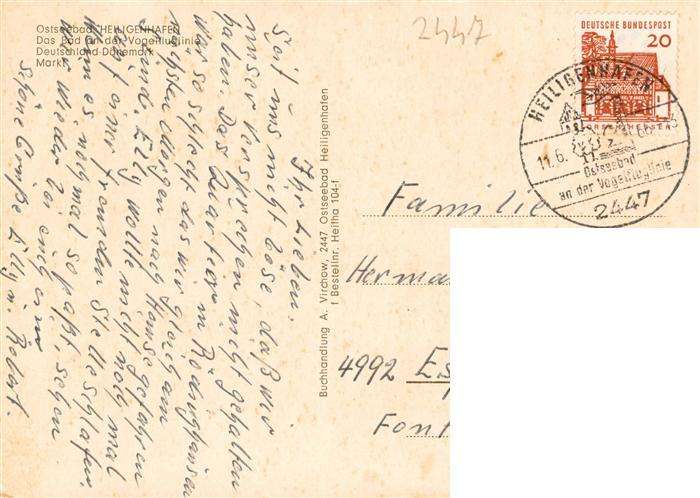 Ostseebad HEILIGENHAFEN
Das Bad an der Vogelfluglinie
Deutschland-Dänemark
Markt
2447
DEUTSCHE BUNDESPOST
20
LORSCH/HESSEN
HEILIGENHAFEN
11.6.
Ostseebad
an der Vogelfluglinie
2447
Ihr Lieben.
Seit uns nicht böse, daß wir
unser Versprechen nicht gehalten
haben. Das Quartier in Rödinghausen
war so schlecht das wir gleich am
nächsten Morgen nach Hause gefahren
sind. Elly wollte nicht noch mal
auf einer fremden Stelle schlafen.
Wenn es noch mal so paßt sehen
wir wieder bei euch ein
Schöne Grüße Elly u. Robert.
Buchhandlung A. Virchow, 2447 Ostseebad Heiligenhafen
f Bestellnr. Heilha 104-f
Familie
Herma
4992 Es
Fon